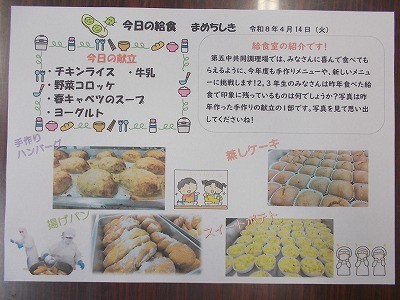 今日の給食 まめぢしき 令和8年4月14日(火)
今日の献立
・チキンライス ・牛乳
・野菜コロッケ
・春キャベツのスープ
・ヨーグルト
給食室の紹介です!
第五中共同調理場では、みなさんに喜んで食べても
らえるように、今年度も手作りメニューや、新しいメニュ
ーに挑戦します!2,3年生のみなさんは昨年食べた給
食で印象に残っているものは何でしょうか?写真は昨
年作った手作りの献立の1部です。写真を見て思い出
してくださいね!
手作り
ハンバーグ
蒸しケーキ
揚げパン
スイートポテト